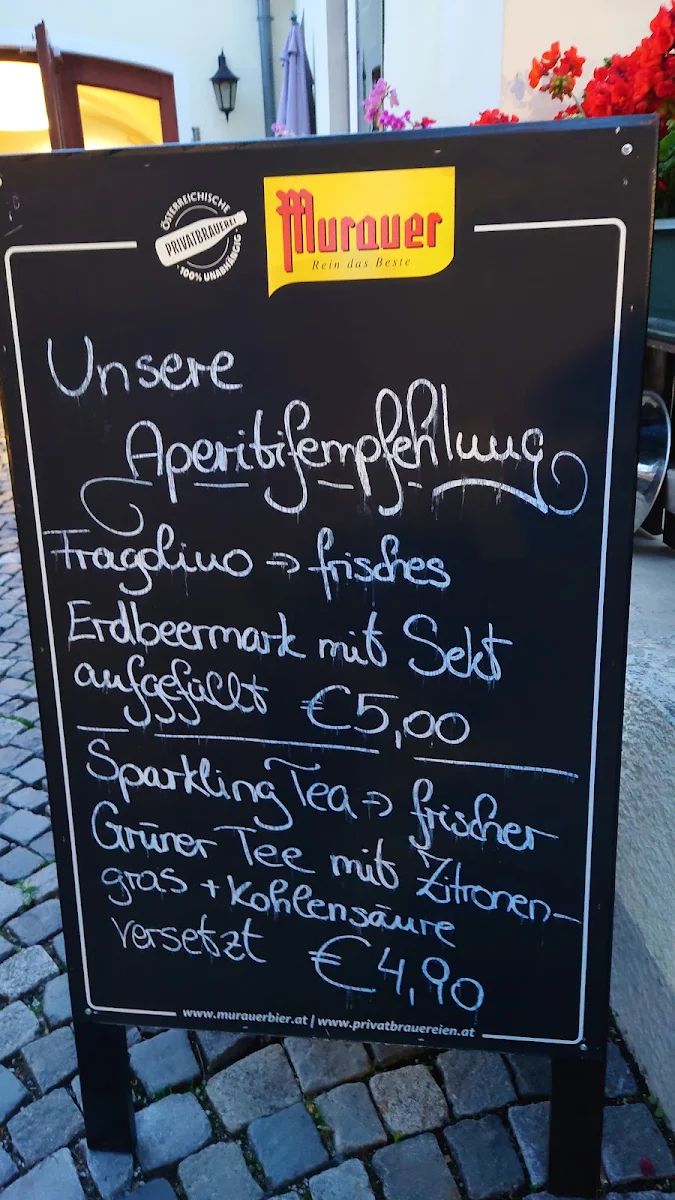 ÖSTERREICHISCHE
PRIVATBRAUEREI
100% UNABHÄNGIG
Murauer
Rein das Beste
Unsere
Aperitifempfehlung
Fragolino → frisches
Erdbeermark mit Sekt
aufgefüllt €5,00
Sparkling Tea → frischer
Grüner Tee mit Zitronen-
gras + Kohlensäure
versetzt €4,90
www.murauerbier.at | www.privatbrauereien.at